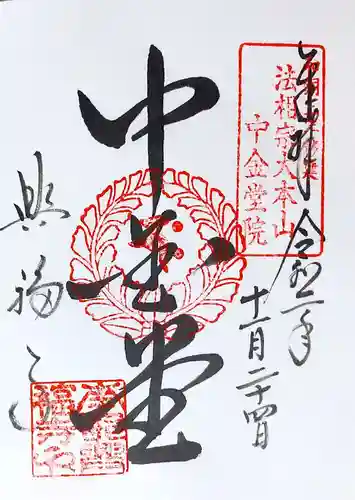 奉拝
令和二年
十一月二十四日
法相宗大本山
中金堂院
中金堂
興福寺